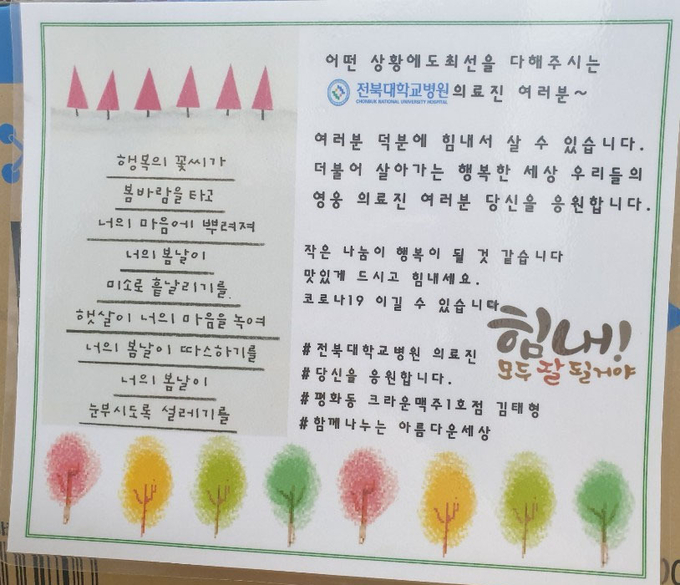 행복의 꽃씨가
봄바람을 타고
너의 마음에 뿌려져
너의 봄날이
미소로 흩날리기를.
햇살이 너의 마음을 녹여
너의 봄날이 따스하기를
너의 봄날이
눈부시도록 설레기를
어떤 상황에도최선을 다해주시는
전북대학교병원의료진 여러분~
CHONBUK NATIONAL UNIVERSITY HOSPITAL
여러분 덕분에 힘내서 살 수 있습니다.
더불어 살아가는 행복한 세상 우리들의
영웅 의료진 여러분 당신을 응원합니다.
작은 나눔이 행복이 될 것 같습니다
맛있게 드시고 힘내세요.
코로나19 이길 수 있습니다
힘내!
모두 잘 될거야
#전북대학교병원 의료진
#당신을 응원합니다.
#평화동 크라운맥주1호점 김태형
#함께나누는 아름다운세상